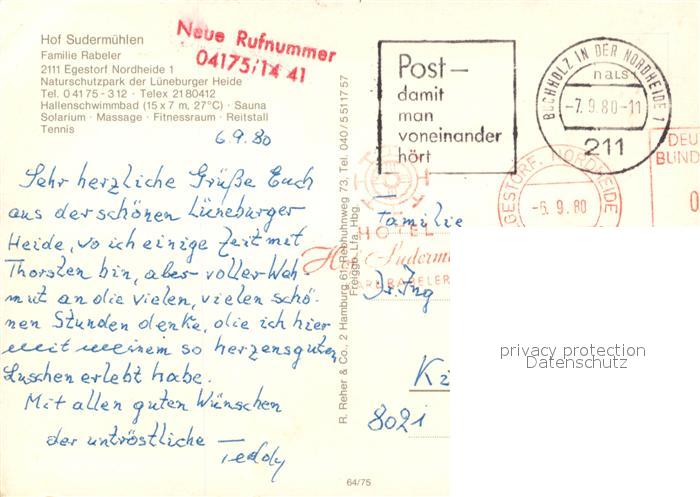 Hof Sudermühlen
Familie Rabeler
2111 Egestorf Nordheide 1
Naturschutzpark der Lüneburger Heide
Tel. 0 41 75 - 3 12 · Telex 21 80 412
Hallenschwimmbad (15 x 7 m, 27°C) · Sauna
Solarium · Massage · Fitnessraum · Reitstall
Tennis
Neue Rufnummer
04175/14 41
6.9.80
Sehr herzliche Grüße Euch
aus der schönen Lüneburger
Heide, wo ich einige Zeit mit
Thorsten bin, aber voller Weh
mut an die vielen, vielen schö-
nen Stunden denke, die ich hier
mit meinem so herzensguten
Luschen erlebt habe.
Mit allen guten Wünschen
der untröstliche Teddy
R. Reher & Co., 2 Hamburg 61, Rebhuhnweg 73, Tel. 040/5 51 17 57
Freigg. Lfa. Hbg.
64/75
Post–
damit
man
voneinander
hört
BUCHHOLZ IN DER NORDHEIDE 1
-7.9.80-11
211
GESTORF, NORDHEIDE
-6.9.80
DEU
BUND
0
HOTEL
Familie
Dr. Ing
K
8021
privacy protection
Datenschutz